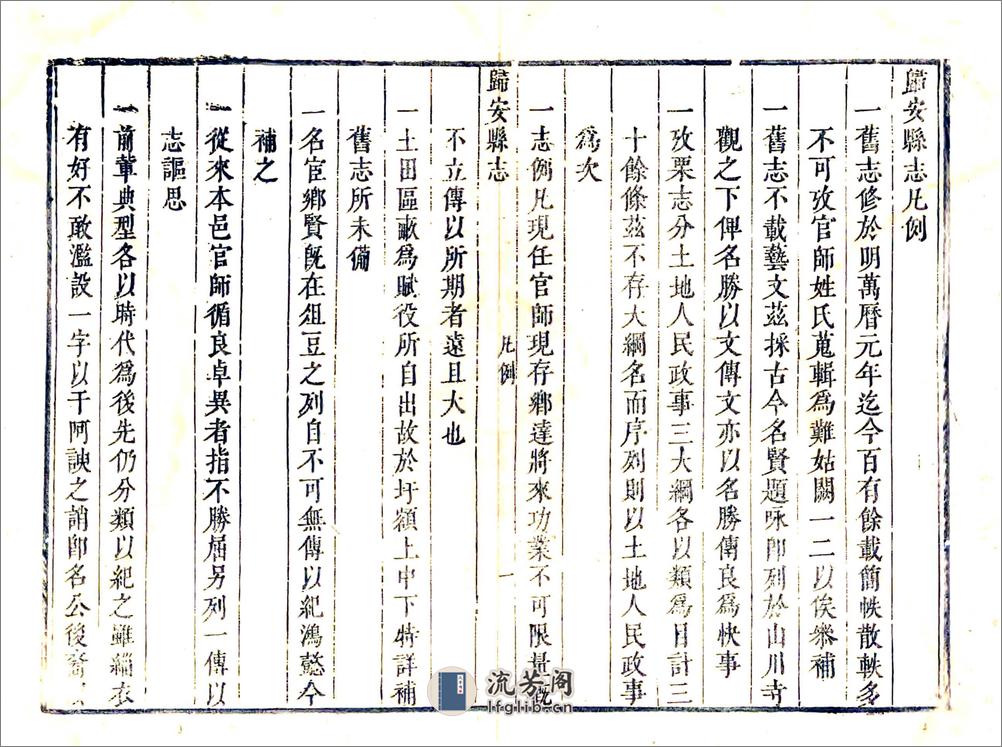 歸安縣志凡例
一舊志修於明萬曆元年迄今百有餘載簡帙散軼多
不可攷官師姓氏蒐輯爲難姑闕一二以俟叅補
一舊志不載藝文茲採古今名賢題咏卽列於山川寺
觀之下俾名勝以文傳文亦以名勝傳良爲快事
一攷栗志分土地人民政事三大綱各以類爲目計三
十餘條茲不存大綱名而序列則以土地人民政事
爲次
歸安縣志
凡例
一
一志例凡現任官師現存鄉達將來功業不可限量概
不立傳以所期者遠且大也
一土田區畝爲賦役所自出故於圩額上中下特詳補
舊志所未備
一名宦鄉賢旣在俎豆之列自不可無傳以紀鴻懿今
補之
一從來本邑官師循良卓異者指不勝屈另列一傳以
志謳思
一前輩典型各以時代爲後先仍分類以紀之雖緇衣
有好不敢濫設一字以干阿諛之誚卽名公後裔
流芳阁
lfglib.cn